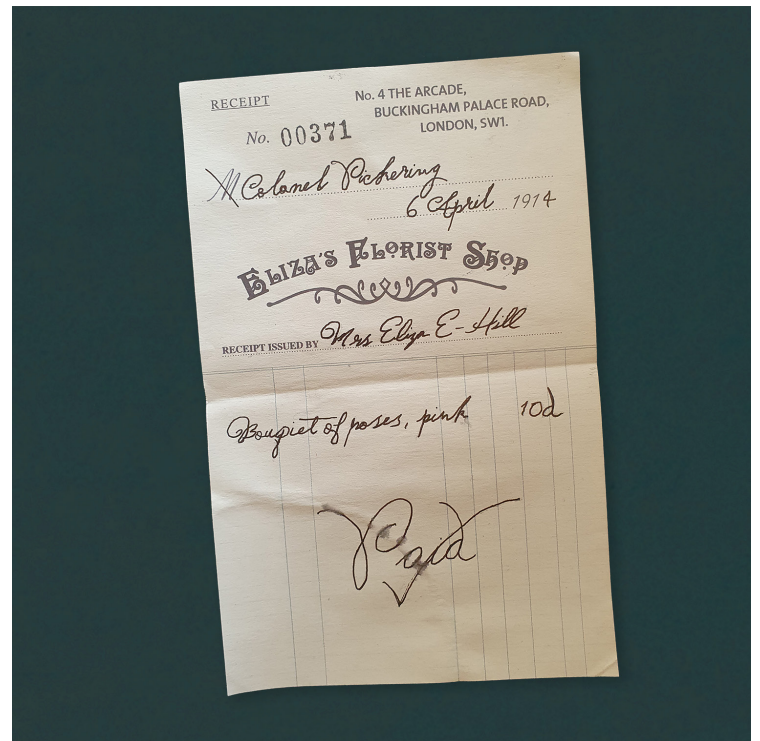 RECEIPT
No. 4 THE ARCADE,
BUCKINGHAM PALACE ROAD,
LONDON, SW1.
No. 00371
M Colonel Pickering
6 April 1914
ELIZA'S FLORIST SHOP
RECEIPT ISSUED BY Mrs Eliza E-Hill
Bouquet of roses, pink 10d
Paid